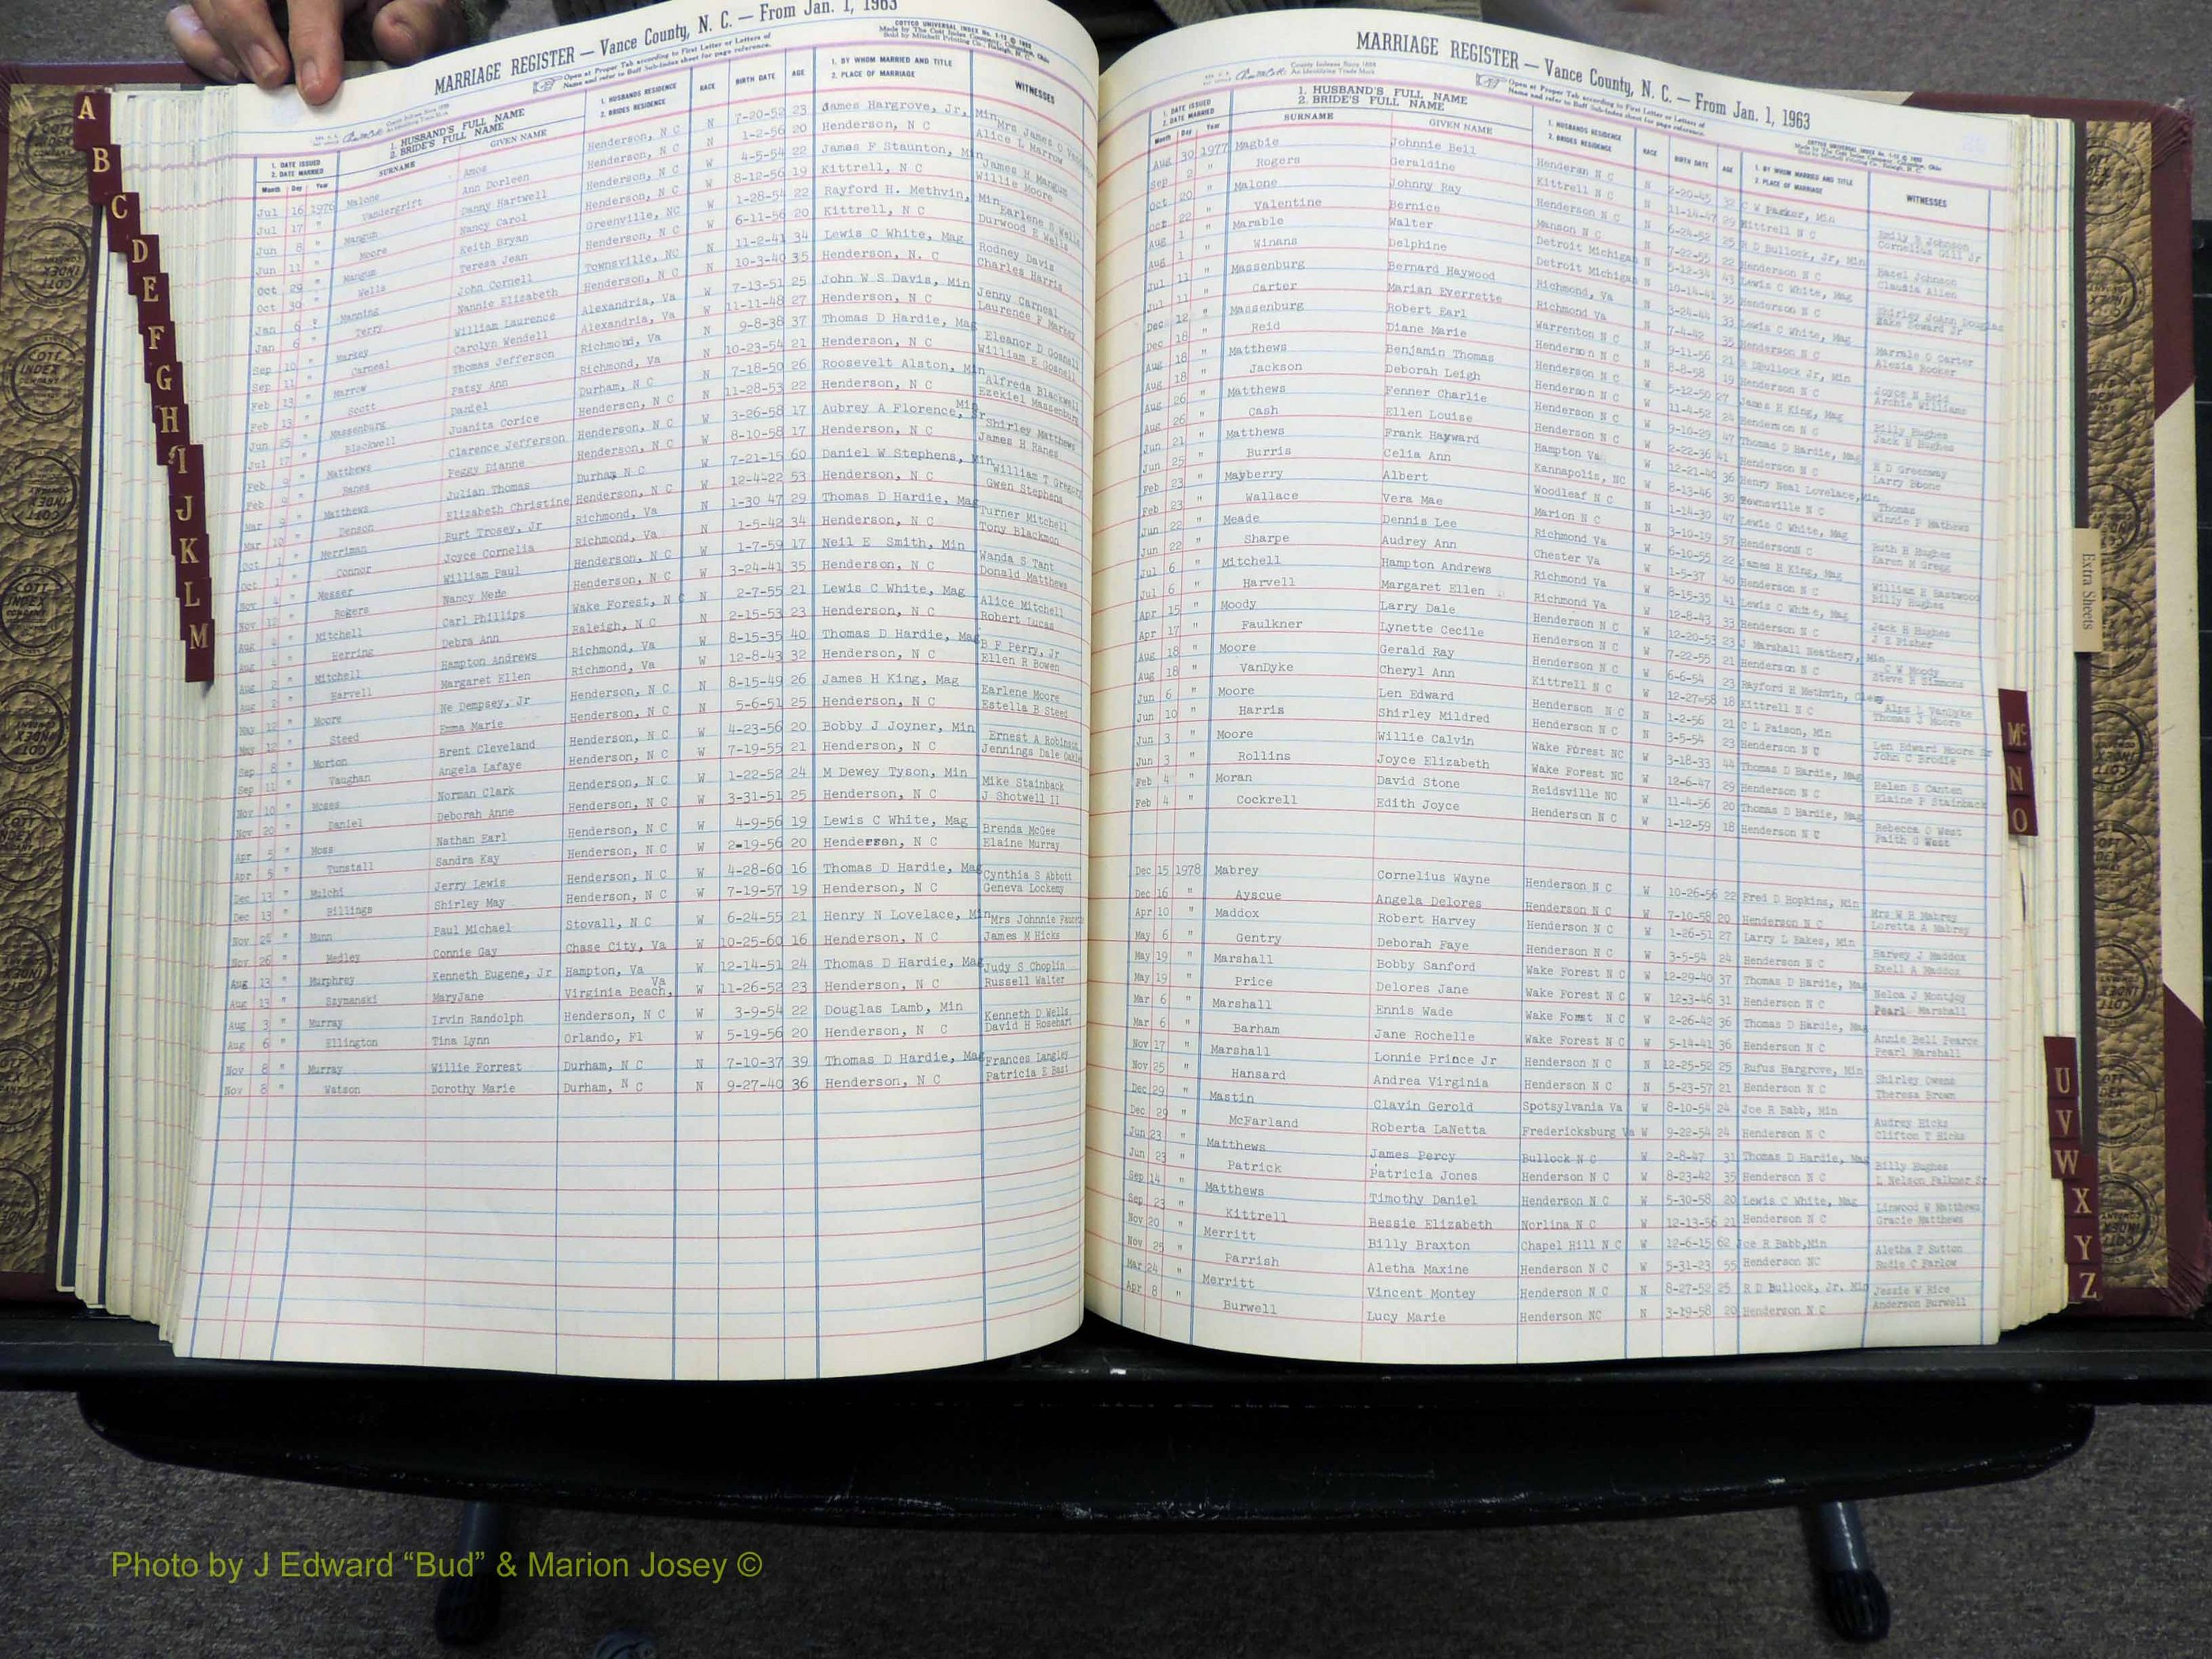 MARRIAGE REGISTER — Vance County, N. C. — From Jan. 1, 1963
COTTCO UNIVERSAL INDEX
Open at Proper Tab according to First Letter or Letters of
Name and refer to Buff Sub-Index sheet for page reference.
1. DATE ISSUED
2. DATE MARRIED
Month Day Year
1. HUSBAND'S FULL NAME
2. BRIDE'S FULL NAME
SURNAME GIVEN NAME
1. HUSBANDS RESIDENCE
2. BRIDES RESIDENCE
RACE BIRTH DATE AGE
1. BY WHOM MARRIED AND TITLE
2. PLACE OF MARRIAGE
WITNESSES
Jul 16 1976 Malone Amos Henderson, N C N 7-20-52 23 James Hargrove, Jr, Min
Jul 17 " Vandergrift Ann Dorleen Henderson, N C N 1-2-56 20 Henderson, N C Alice L Marrow
Jun 8 " Mangum Danny Hartwell Henderson, N C W 4-5-54 22 James F Staunton, Min James H Mangum
Jun 11 " Moore Nancy Carol Henderson, N C W 8-12-56 19 Kittrell, N C Willie Moore
Oct 29 " Mangum Keith Bryan Greenville, NC W 1-28-54 22 Rayford H. Methvin, Min Earlene B Wells
Oct 30 " Wells Teresa Jean Henderson, N C W 6-11-56 20 Kittrell, N C Durwood E Wells
Jan 6 " Manning John Cornell Townsville, NC N 11-2-41 34 Lewis C White, Mag Rodney Davis
Jan 6 " Terry Nannie Elizabeth Henderson, N C N 10-3-40 35 Henderson, N. C Charles Harris
Sep 10 " Markey William Laurence Alexandria, Va W 7-13-51 25 John W S Davis, Min Jenny Carneal
Sep 11 " Carneal Carolyn Wendell Alexandria, Va W 11-11-48 27 Henderson, N C Laurence F Markey
Feb 13 " Marrow Thomas Jefferson Richmond, Va N 9-8-38 37 Thomas D Hardie, Mag Eleanor D Gosnell
Feb 13 " Scott Patsy Ann Richmond, Va N 10-23-54 21 Henderson, N C William E Gosnell
Jun 25 " Massenburg Daniel Durham, N C N 7-18-50 26 Roosevelt Alston, Min Alfreda Blackwell
Jul 17 " Blackwell Juanita Corice Henderson, N C N 11-28-53 22 Henderson, N C Ezekiel Massenburg
Feb 9 " Matthews Clarence Jefferson Henderson, N C W 3-26-58 17 Aubrey A Florence, Min Shirley Matthews
Feb 9 " Hanes Peggy Dianne Henderson, N C W 8-10-58 17 Henderson, N C James H Hanes
Mar 9 " Matthews Julian Thomas Durham N C W 7-21-15 60 Daniel W Stephens, Min William T Gregory
Mar 10 " Denson Elizabeth Christine Henderson, N C W 12-4-22 53 Henderson, N C Gwen Stephens
Oct 1 " Merriman Burt Trosey, Jr Richmond, Va N 1-30 47 29 Thomas D Hardie, Mag Turner Mitchell
Oct 1 " Connor Joyce Cornelia Richmond, Va N 1-5-42 34 Henderson, N C Tony Blackmon
Nov 4 " Messer William Paul Henderson, N C W 1-7-59 17 Neil E Smith, Min Wanda S Tant
Nov 12 " Rogers Nancy Mede Henderson, N C W 3-24-41 35 Henderson, N C Donald Matthews
Aug 4 " Mitchell Carl Phillips Wake Forest, N C N 2-7-55 21 Lewis C White, Mag Alice Mitchell
Aug 4 " Herring Debra Ann Raleigh, N C N 2-15-53 23 Henderson, N C Robert Lucas
Aug 2 " Mitchell Hampton Andrews Richmond, Va W 8-15-35 40 Thomas D Hardie, Mag B F Perry, Jr
Aug 2 " Harvell Margaret Ellen Richmond, Va W 12-8-43 32 Henderson, N C Ellen R Bowen
May 12 " Moore Ne Dempsey, Jr Henderson, N C N 8-15-49 26 James H King, Mag Earlene Moore
May 12 " Steed Emma Marie Henderson, N C N 5-6-51 25 Henderson, N C Estella B Steed
Sep 8 " Morton Brent Cleveland Henderson, N C W 4-23-56 20 Bobby J Joyner, Min Ernest A Robinson
Sep 11 " Vaughan Angela Lafaye Henderson, N C W 7-19-55 21 Henderson, N C Jennings Dale Oakley
Nov 10 " Moses Norman Clark Henderson, N C W 1-22-52 24 M Dewey Tyson, Min Mike Stainback
Nov 20 " Daniel Deborah Anne Henderson, N C W 3-31-51 25 Henderson, N C J Shotwell II
Apr 5 " Moss Nathan Earl Henderson, N C W 4-9-56 19 Lewis C White, Mag Brenda McGee
Apr 5 " Tunstall Sandra Kay Henderson, N C W 2-19-56 20 Henderson, N C Elaine Murray
Dec 13 " Mulchi Jerry Lewis Henderson, N C W 4-28-60 16 Thomas D Hardie, Mag Cynthia S Abbott
Dec 13 " Billings Shirley May Henderson, N C W 7-19-57 19 Henderson, N C Geneva Lockemy
Nov 24 " Munn Paul Michael Stovall, N C W 6-24-55 21 Henry N Lovelace, Min Mrs Johnnie
Nov 26 " Medley Connie Gay Chase City, Va W 10-25-60 16 Henderson, N C James M Hicks
Aug 13 " Murphrey Kenneth Eugene, Jr Hampton, Va W 12-14-51 24 Thomas D Hardie, Mag Judy S Choplin
Aug 13 " Szymanski MaryJane Virginia Beach, Va W 11-26-52 23 Henderson, N C Russell Walter
Aug 3 " Murray Irvin Randolph Henderson, N C W 3-9-54 22 Douglas Lamb, Min Kenneth D Wells
Aug 6 " Ellington Tina Lynn Orlando, Fl W 5-19-56 20 Henderson, N C David H Rosehart
Nov 8 " Murray Willie Forrest Durham, N C N 7-10-37 39 Thomas D Hardie, Mag Frances Langley
Nov 8 " Watson Dorothy Marie Durham, N C N 9-27-40 36 Henderson, N C Patricia E Bast
MARRIAGE REGISTER — Vance County, N. C. — From Jan. 1, 1963
Open at Proper Tab according to First Letter or Letters of
Name and refer to Buff Sub-Index sheet for page reference.
1. DATE ISSUED
2. DATE MARRIED
Month Day Year
1. HUSBAND'S FULL NAME
2. BRIDE'S FULL NAME
SURNAME GIVEN NAME
1. HUSBANDS RESIDENCE
2. BRIDES RESIDENCE
RACE BIRTH DATE AGE
1. BY WHOM MARRIED AND TITLE
2. PLACE OF MARRIAGE
WITNESSES
Aug 30 1977 Magbie Johnnie Bell Henderan N C N 2-20-45 32 C W Parker, Min Emily B Johnson
Sep 2 " Rogers Geraldine Kittrell N C N 11-14-47 29 Kittrell N C Cornelius Gill Jr
Oct 20 " Malone Johnny Ray Henderson N C N 6-24-52 25 R D Bullock, Jr, Min Hazel Johnson
Oct 22 " Valentine Bernice Manson N C N 7-22-55 22 Henderson N C Claudia Allen
Aug 1 " Marable Walter Detroit Michigan N 5-12-34 43 Lewis C White, Mag Shirley JoAnn Douglas
Aug 1 " Winans Delphine Detroit Michigan N 10-14-41 35 Henderson N C Zake Seward Jr
Jul 11 " Massenburg Bernard Haywood Richmond, Va N 3-24-44 33 Lewis C White, Mag Marrale O Carter
Jul 11 " Carter Marian Everrette Richmond Va N 7-4-42 35 Henderson N C Alezia Rooker
Dec 12 " Massenburg Robert Earl Warrenton N C N 9-11-56 21 R DBullock Jr, Min Joyce N Reid
Dec 18 " Reid Diane Marie Henderson N C N 8-8-58 19 Henderson N C Archie Williams
Aug 18 " Matthews Benjamin Thomas Henderson N C W 5-12-50 27 James H King, Mag Billy Hughes
Aug 18 " Jackson Deborah Leigh Henderson N C W 11-4-52 24 Henderson N C Jack E Hughes
Aug 26 " Matthews Fenner Charlie Henderson N C W 9-10-29 47 Thomas D Hardie, Mag E D Greenway
Aug 26 " Cash Ellen Louise Henderson N C W 2-22-36 41 Henderson N C Larry Boone
Jun 21 " Matthews Frank Hayward Hampton Va W 12-21-40 36 Henry Neal Lovelace, Min Thomas
Jun 25 " Burris Celia Ann Kannapolis, NC W 8-13-46 30 Townsville N C Winnie P Mathews
Feb 23 " Mayberry Albert Woodleaf N C N 1-14-30 47 Lewis C White, Mag Ruth H Hughes
Feb 23 " Wallace Vera Mae Marion N C N 3-10-19 57 HendersonN C Karen M Gregg
Jun 22 " Meade Dennis Lee Richmond Va W 6-10-55 22 James H King, Mag William H Eastwood
Jun 22 " Sharpe Audrey Ann Chester Va W 1-5-37 40 Henderson N C Billy Hughes
Jul 6 " Mitchell Hampton Andrews Richmond Va W 8-15-35 41 Lewis C White, Mag Jack E Hughes
Jul 6 " Harvell Margaret Ellen Richmond Va W 12-8-43 33 Henderson N C J E Fisher
Apr 15 " Moody Larry Dale Henderson N C W 12-20-53 23 J Marshall Neathery, Min C W Moody
Apr 17 " Faulkner Lynette Cecile Henderson N C W 7-22-55 21 Henderson N C Steve R Simmons
Aug 18 " Moore Gerald Ray Henderson N C W 6-6-54 23 Rayford H Methvin, Clergy Alps L VanDyke
Aug 18 " VanDyke Cheryl Ann Kittrell N C W 12-27-58 18 Kittrell N C Thomas J Moore
Jun 6 " Moore Len Edward Henderson N C N 1-2-56 21 C L Faison, Min Len Edward Moore Sr
Jun 10 " Harris Shirley Mildred Henderson N C N 3-5-54 23 Henderson N C John C Brodie
Jun 3 " Moore Willie Calvin Wake Forest NC W 3-18-33 44 Thomas D Hardie, Mag Helen S Canten
Jun 3 " Rollins Joyce Elizabeth Wake Forest NC W 12-6-47 29 Henderson N C Elaine P Stainback
Feb 4 " Moran David Stone Reidsville NC W 11-4-56 20 Thomas D Hardie, Mag Rebecca O West
Feb 4 " Cockrell Edith Joyce Henderson N C W 1-12-59 18 Henderson N C Faith O West
Dec 15 1978 Mabrey Cornelius Wayne Henderson N C W 10-26-56 22 Fred D Hopkins, Min Mrs W H Mabrey
Dec 16 " Ayscue Angela Delores Henderson N C W 7-10-58 20 Henderson N C Loretta A Mabrey
Apr 10 " Maddox Robert Harvey Henderson N C W 1-26-51 27 Larry L Eakes, Min Harvey J Maddox
May 6 " Gentry Deborah Faye Henderson N C W 3-5-54 24 Henderson N C Exell A Maddox
May 19 " Marshall Bobby Sanford Wake Forest N C W 12-29-40 37 Thomas D Hardie, Mag Neloa J Montjoy
May 19 " Price Delores Jane Wake Forest N C W 12-3-46 31 Henderson N C Pearl Marshall
Mar 6 " Marshall Ennis Wade Wake Forest N C W 2-26-42 36 Thomas D Hardie, Mag Annie Bell Pearce
Mar 6 " Barham Jane Rochelle Wake Forest N C W 5-14-41 36 Henderson N C Pearl Marshall
Nov 17 " Marshall Lonnie Prince Jr Henderson N C N 12-25-52 25 Rufus Hargrove, Min Shirley Owens
Nov 25 " Hansard Andrea Virginia Henderson N C N 5-23-57 21 Henderson N C Theresa Brown
Dec 29 " Mastin Clavin Gerold Spotsylvania Va W 8-10-54 24 Joe R Babb, Min Audrey Hicks
Dec 29 " McFarland Roberta LaNetta Fredericksburg Va W 9-22-54 24 Henderson N C Clifton T Hicks
Jun 23 " Matthews James Percy Bullock N C W 2-8-47 31 Thomas D Hardie, Mag Billy Hughes
Jun 23 " Patrick Patricia Jones Henderson N C W 8-23-42 35 Henderson N C L Nelson Falkner Sr
Sep 14 " Matthews Timothy Daniel Henderson N C W 5-30-58 20 Lewis C White, Mag Linwood W Matthews
Sep 23 " Kittrell Bessie Elizabeth Norlina N C W 12-13-56 21 Henderson N C Gracie Matthews
Nov 20 " Merritt Billy Braxton Chapel Hill N C W 12-6-15 62 Joe R Babb,Min Aletha P Sutton
Nov 25 " Parrish Aletha Maxine Henderson N C W 5-31-23 55 Henderson NC Sudie C Parlow
Mar 24 " Merritt Vincent Montey Henderson N C N 8-27-52 25 R D Bullock, Jr. Min Jessie W Rice
Apr 8 " Burwell Lucy Marie Henderson NC N 3-19-58 20 Henderson N C Anderson Burwell
A
B
C
D
E
F
G
H
I
J
K
L
M
Extra Sheets
Mc
N
O
U
V
W
X
Y
Z
Photo by J Edward “Bud” & Marion Josey ©